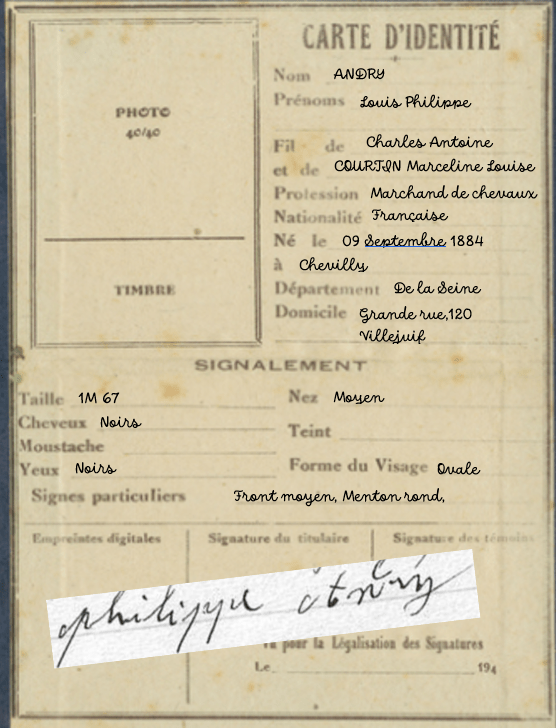 CARTE D'IDENTITÉ
PHOTO
40/40
TIMBRE
Nom ANDRY
Prénoms Louis Philippe
Fil de Charles Antoine
et de COURTIN Marceline Louise
Profession Marchand de chevaux
Nationalité Française
Né le 09 Septembre 1884
à Chevilly
Département De la Seine
Domicile Grande rue,120
Villejuif
SIGNALEMENT
Taille 1M 67
Nez Moyen
Cheveux Noirs
Teint
Moustache
Yeux Noirs
Forme du Visage Ovale
Signes particuliers Front moyen, Menton rond,
Empreintes digitales
Signature du titulaire
Signature des témoins
philippe Andry
Vu pour la Légalisation des Signatures
Le 194